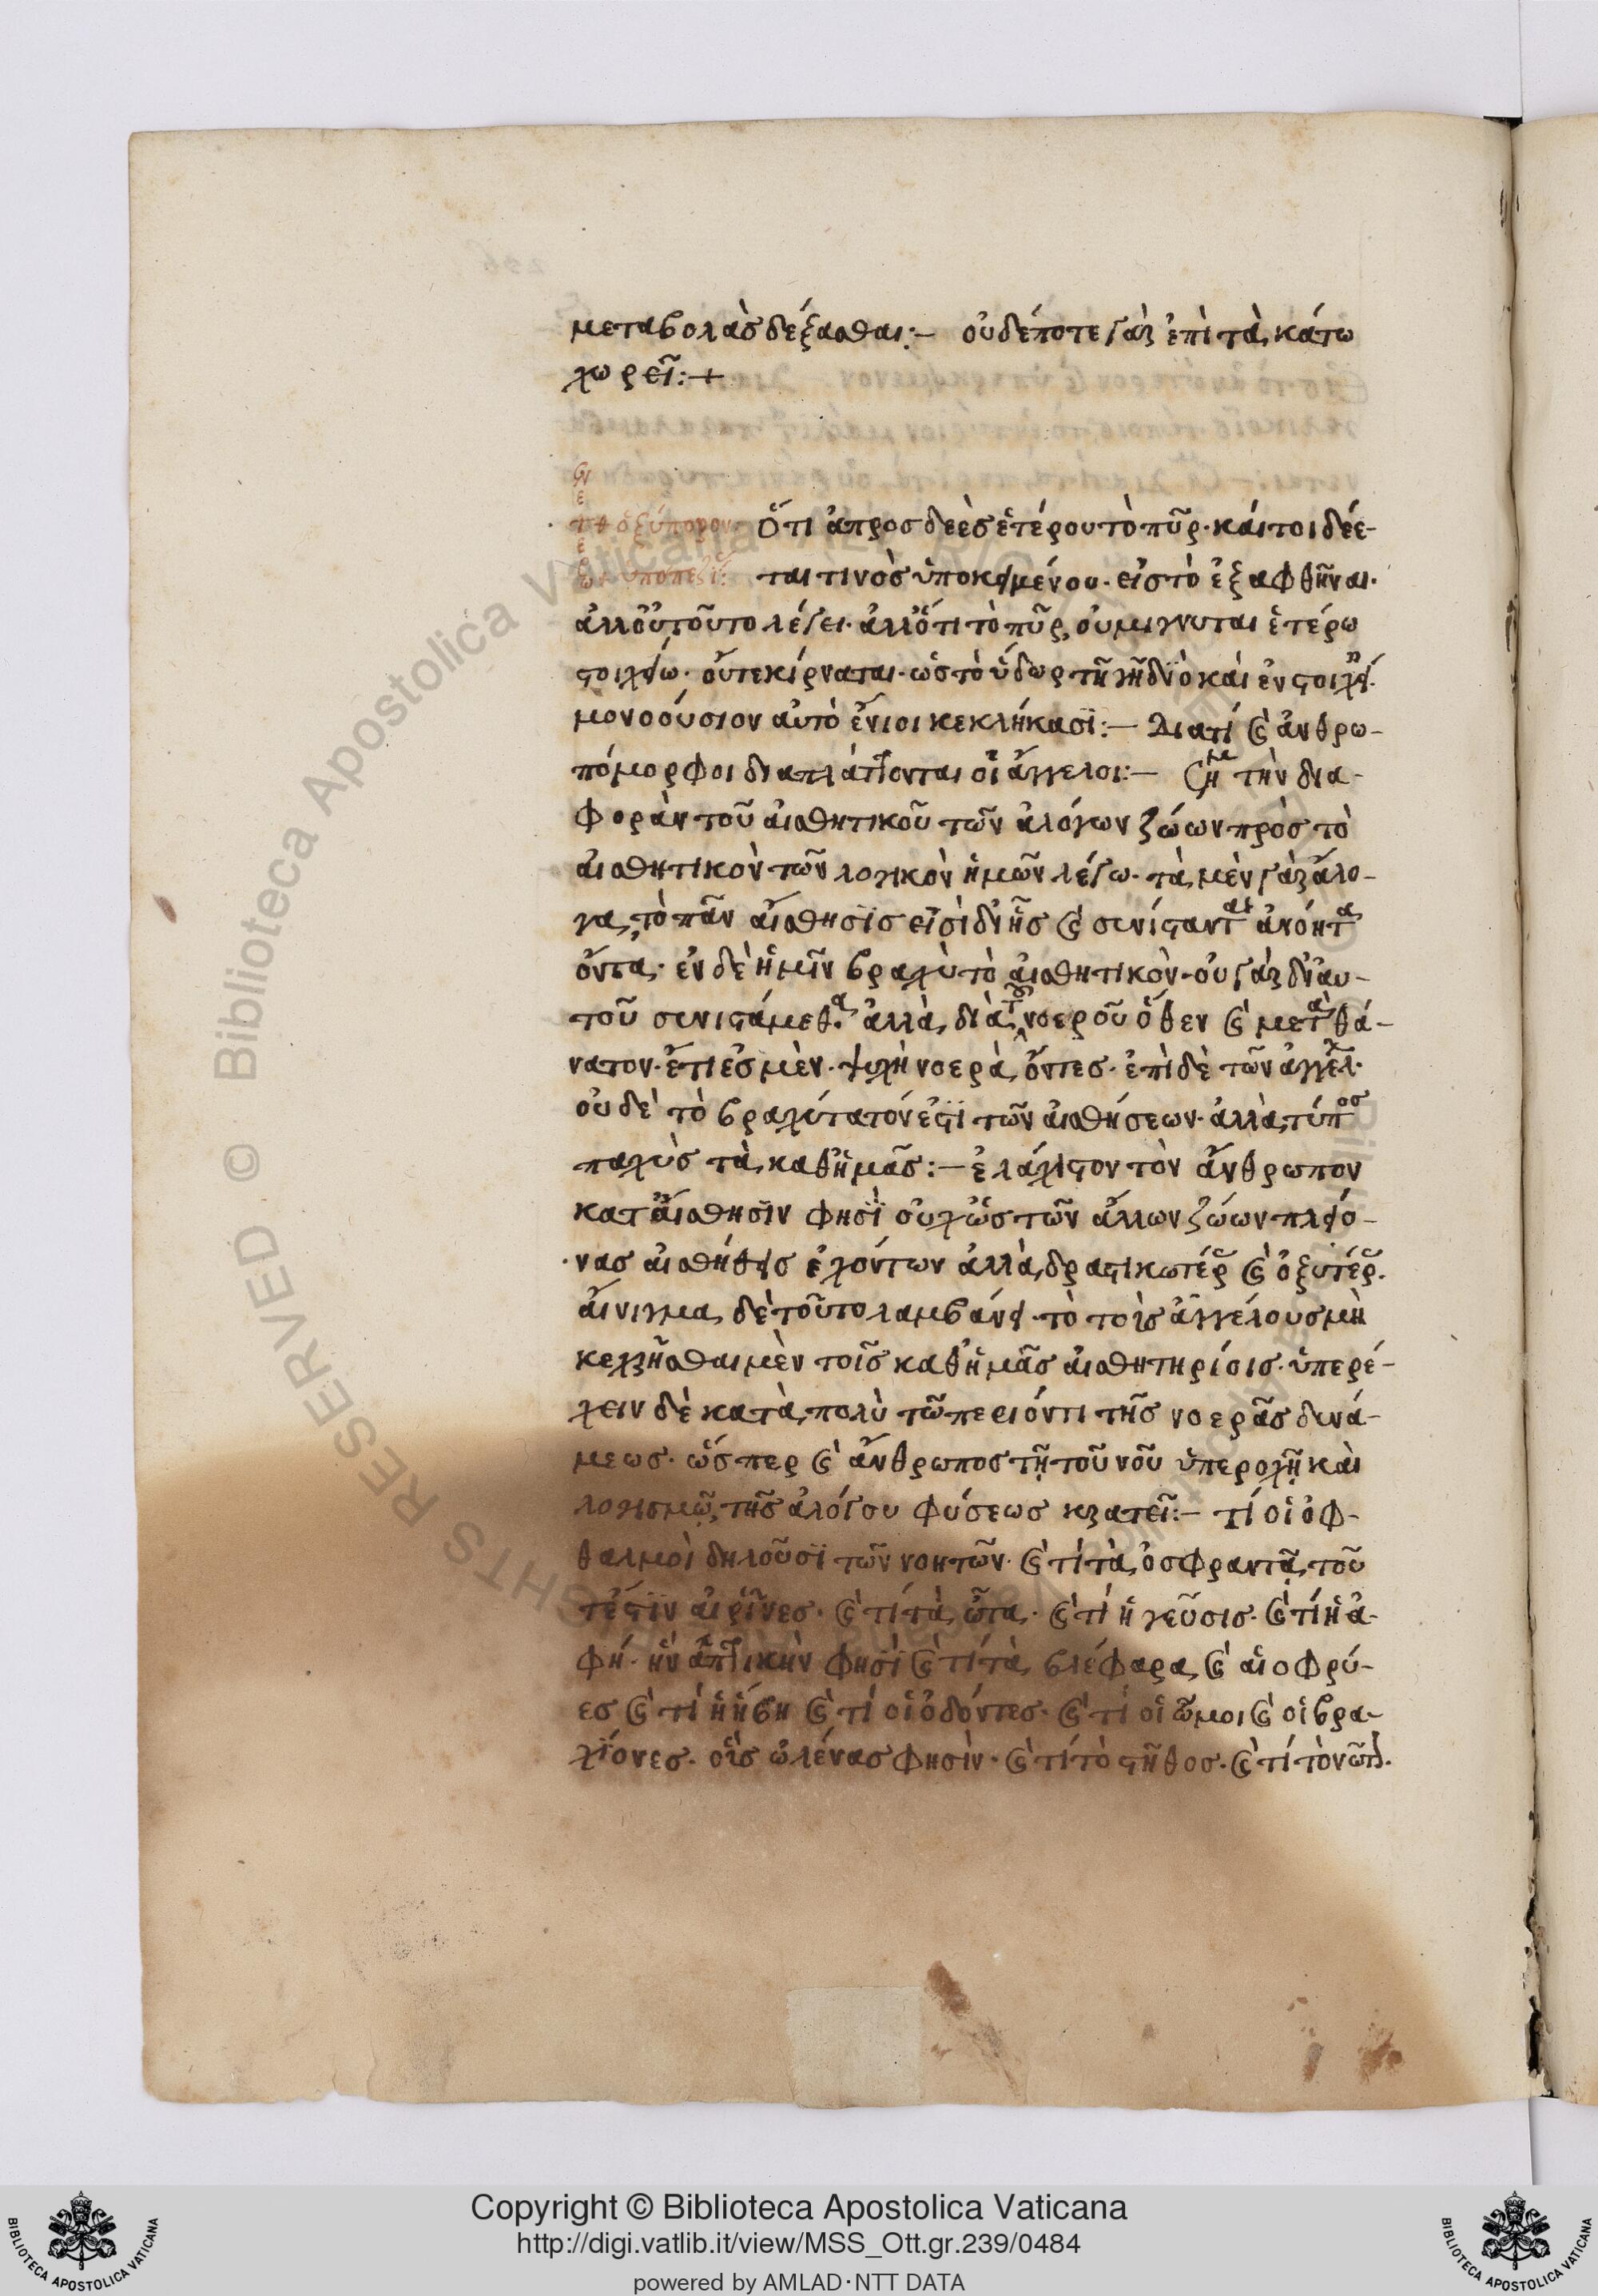 μεταβολὰς δέξασθαι:– οὐδέποτε γὰρ ἐπὶ τὰ κάτω
χωρεῖ:+
ὀξύπορον· Ὅτι ἀπροσδεὲς ἑτέρου τὸ πῦρ· κάιτοι δέε-
ται τινὸς ὑποκειμένου· εἰς τὸ ἐξαφθῆναι·
ἀλλ' οὐ τοῦτο λέγει· ἀλλ' ὅτι τὸ πῦρ οὐ μιγνυται ἑτέρω
στοιχείω· οὔτε κίρναται· ὡς τὸ ὕδωρ τῆ γῆ διὸ καὶ ἐν στοιχεί·
μονοούσιον αὐτὸ ἔνιοι κεκλήκασϊ:– Διατί καὶ ἀνθρω-
πόμορφοι διαπλάττονται οἱ ἄγγελοι:– τὴν δια-
φορὰν τοῦ αἰσθητικοῦ τῶν ἀλόγων ζώων πρὸς τὸ
αἰσθητικὸν τῶν λογικὸν ἡμῶν λέγω· τὰ μὲν γὰρ ἄλο-
γα, τὸ πᾶν αἴσθησϊς εἰσὶ δι' ἧς καὶ συνίστανται ἀνόητα
ὄντα· ἐν δὲ ἡμῖν βραχὺ τὸ αἰσθητικὸν· οὐ γὰρ δι' αυ-
τοῦ συνιστάμεθα· ἀλλὰ διὰ τοῦ νοεροῦ ὅθεν καὶ μετὰ θά-
νατον· ἔτι ἐσμὲν· ψυχὴ νοερὰ ὄντες· ἐπὶ δὲ τῶν ἀγγέλ·
οὐδὲ τὸ βραχύτατόν ἐστϊ τῶν αἰσθήσεων· ἀλλὰ τύπος
παχὺς τὰ καθ' ἡμᾶς:– ἐλάχιστον τὸν ἄνθρωπον
κατ' αἴσθησϊν φησϊ οὐχ ὡς τῶν ἄλλων ζώων πλείο-
νας αἰσθήσεις ἐχόντων ἀλλὰ δραστικωτέρ καὶ ὀξυτέρ·
αἴνιγμα δὲ τοῦτο λαμβάνει· τὸ τοὶς ἀγγέλους μὴ
κεχρῆσθαι μὲν τοῖς καθ' ἡμᾶς αἰσθητηρίοις· ὑπερέ-
χειν δὲ κατὰ πολὺ τῶ περιόντι τῆς νοερᾶς δυνά-
μεως· ὥσπερ καὶ ἄνθρωπος τῆ τοῦ νοῦ ὑπεροχῆ καὶ
λογισμῶ, τῆς ἀλόγου φύσεως κρατεῖ:– τί οἱ ὀφ-
θαλμοὶ δηλοῦσϊ τῶν νοητῶν· καὶ τί τὰ ὀσφραντὰ του
τέστϊν αἱ ρῖνες· καὶ τί τὰ ὦτα· καὶ τί ἡ γεῦσις· καὶ τί ἡ ἁ-
φή· ἣν ἁπτικὴν φησὶ καὶ τί τὰ βλέφαρα καὶ αἱ οφρύ-
ες καὶ τί ἡ ἥβη καὶ τί οἱ ὀδόντες· καὶ τί οἱ ὦμοι καὶ οἱ βρα-
χϊόνες· οἷς ὠλένας φησὶν· καὶ τί τὸ στῆθος· καὶ τί τὸ νῶτ·
Copyright © Biblioteca Apostolica Vaticana
http://digi.vatlib.it/view/MSS_Ott.gr.239/0484
powered by AMLAD·NTT DATA
BIBLIOTECA APOSTOLICA VATICANA
BIBLIOTECA APOSTOLICA VATICANA